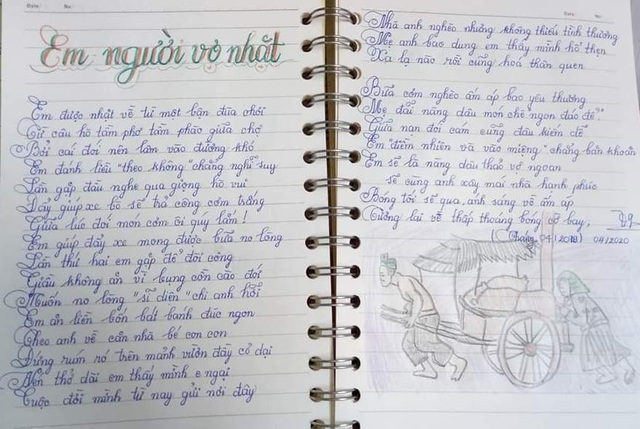 Date: No:
Em người vợ nhặt
Em được nhặt về từ một bận đùa chơi
Từ câu hò tầm phơ tầm phào giữa chợ
Bởi cái đói nên lâm vào đường khó
Em đánh liều "theo không" chẳng nghĩ suy
Lần gặp đầu nghe qua giọng hò vui
Đẩy giúp xe bò sẽ trả công cơm trắng
Giữa lúc đói món cơm ôi quý lắm!
Em giúp đẩy xe mong được bữa no lòng
Lần thứ hai em gặp để đòi công
Giầu không ăn vì bụng cồn cào đói
Muốn no lòng "sĩ diện" chi anh hỡi
Em ăn liền bốn bát bánh đúc ngon
Theo anh về căn nhà bé con con
Đứng rúm ró trên mảnh vườn đầy cỏ dại
Nén thở dài em thấy mình e ngại
Cuộc đời mình từ nay gửi nơi đây
Date: No:
Nhà anh nghèo nhưng không thiếu tình thương
Mẹ anh bao dung em thấy mình hổ thẹn
Xa lạ nào rồi cũng hoá thân quen
Bữa cơm nghèo ấm áp bao yêu thương
Mẹ đãi nàng dâu món chè "ngon đáo để"
Giữa nạn đói cám cũng đâu kiếm dễ
Em điềm nhiên và vào miệng "chẳng băn khoăn"
Em sẽ là nàng dâu thảo vợ ngoan
Sẽ cùng anh xây mái nhà hạnh phúc
Bóng tối sẽ qua, ánh sáng về ấm áp
Tương lai về thấp thoáng bóng cờ bay,
04/2020